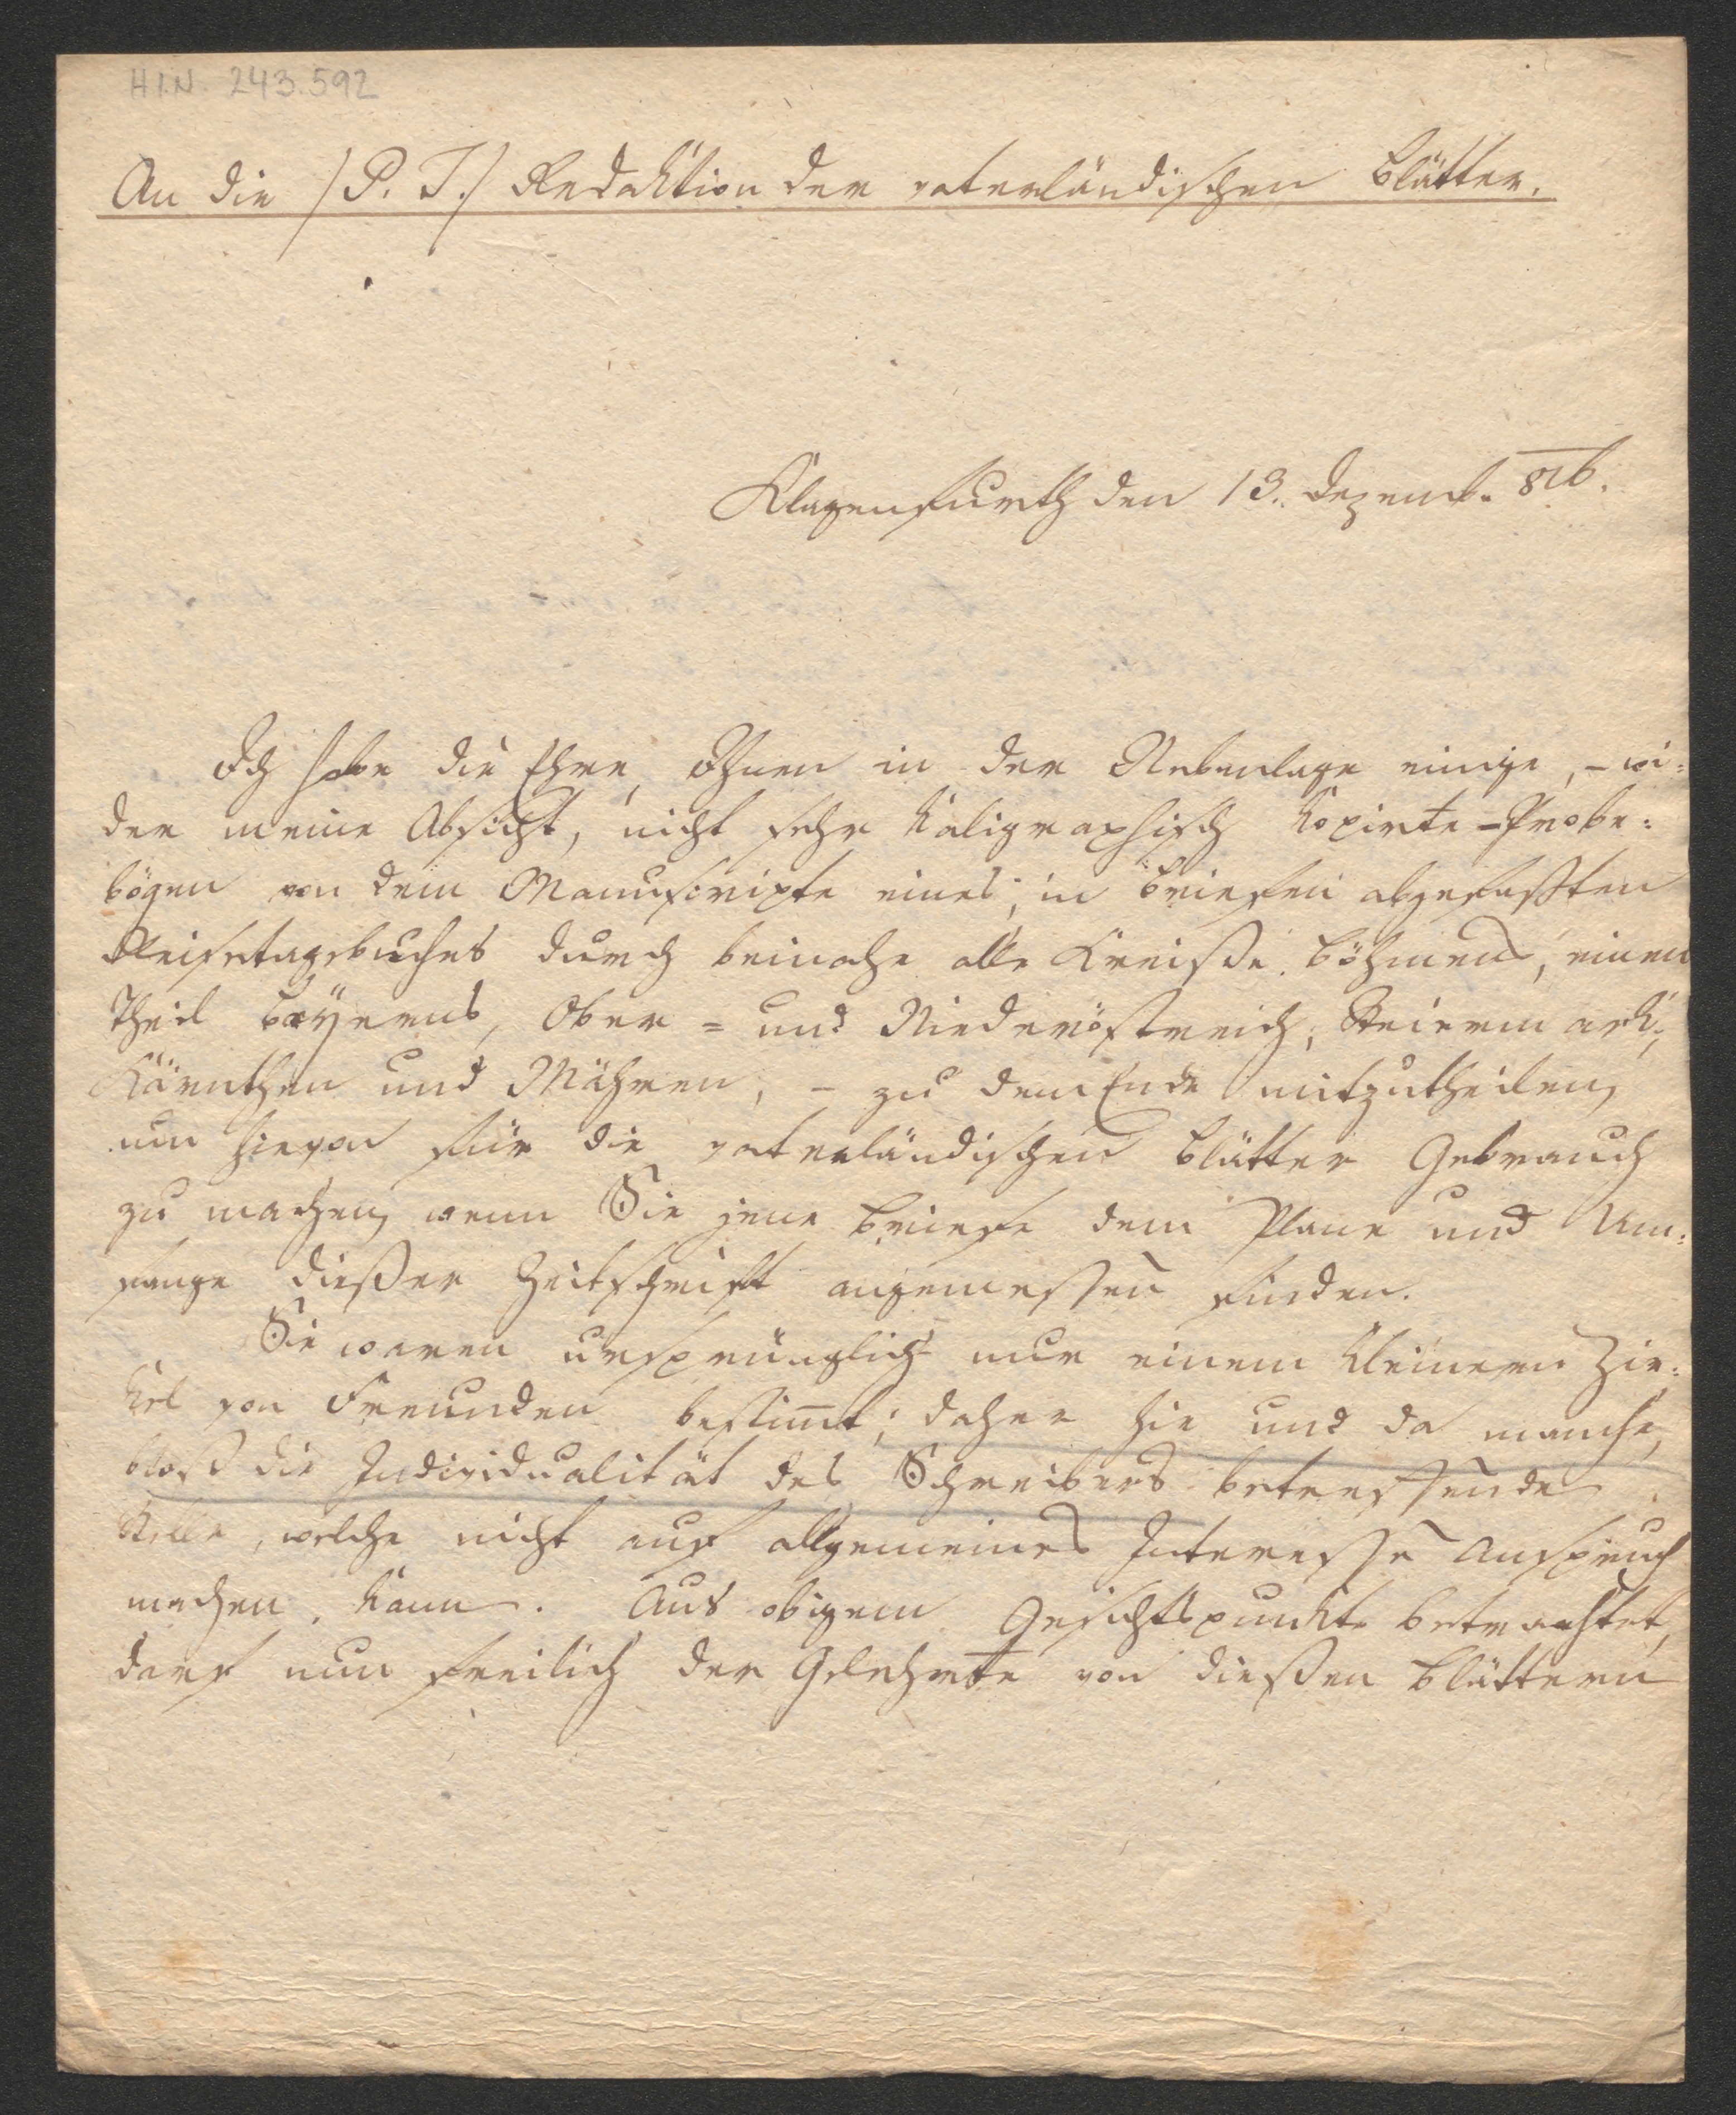 H.I.N. 243.592
An die /P. T./ Redaktion der vaterländischen Blätter.
Klagenfurth den 13. Dezemb. 816.
Ich habe die Ehre, Ihnen in der Nebenlage einige, – wi:
der meine Absicht, nicht sehr kaligraphisch kopirte – Probe:
bögen von dem Manuscripte eines, in Briefen abgefaßten
Reisetagebuches durch beinahe alle Kreise Böhmens, einen
Theil Bayerns, Ober = und Niederöstreich, Steiermark,
Kärnthen und Mähren, – zu dem Ende mitzutheilen,
um hievon für die vaterländischen Blätter Gebrauch
zu machen, wenn Sie jene Briefe dem Plane und Um:
fange dießer Zeitschrift angemessen finden.
Sie waren ursprünglich nur einem kleinern Zir:
kel von Freunden bestimt; daher hie und da manche,
bloß die Individualität des Schreibers betreffende
Stelle, welche nicht auf allgemeines Interesse Anspruch
machen kann. Aus obigem Gesichtspunkte betrachtet,
darf nun freilich der Gelehrte von dießen Blättern